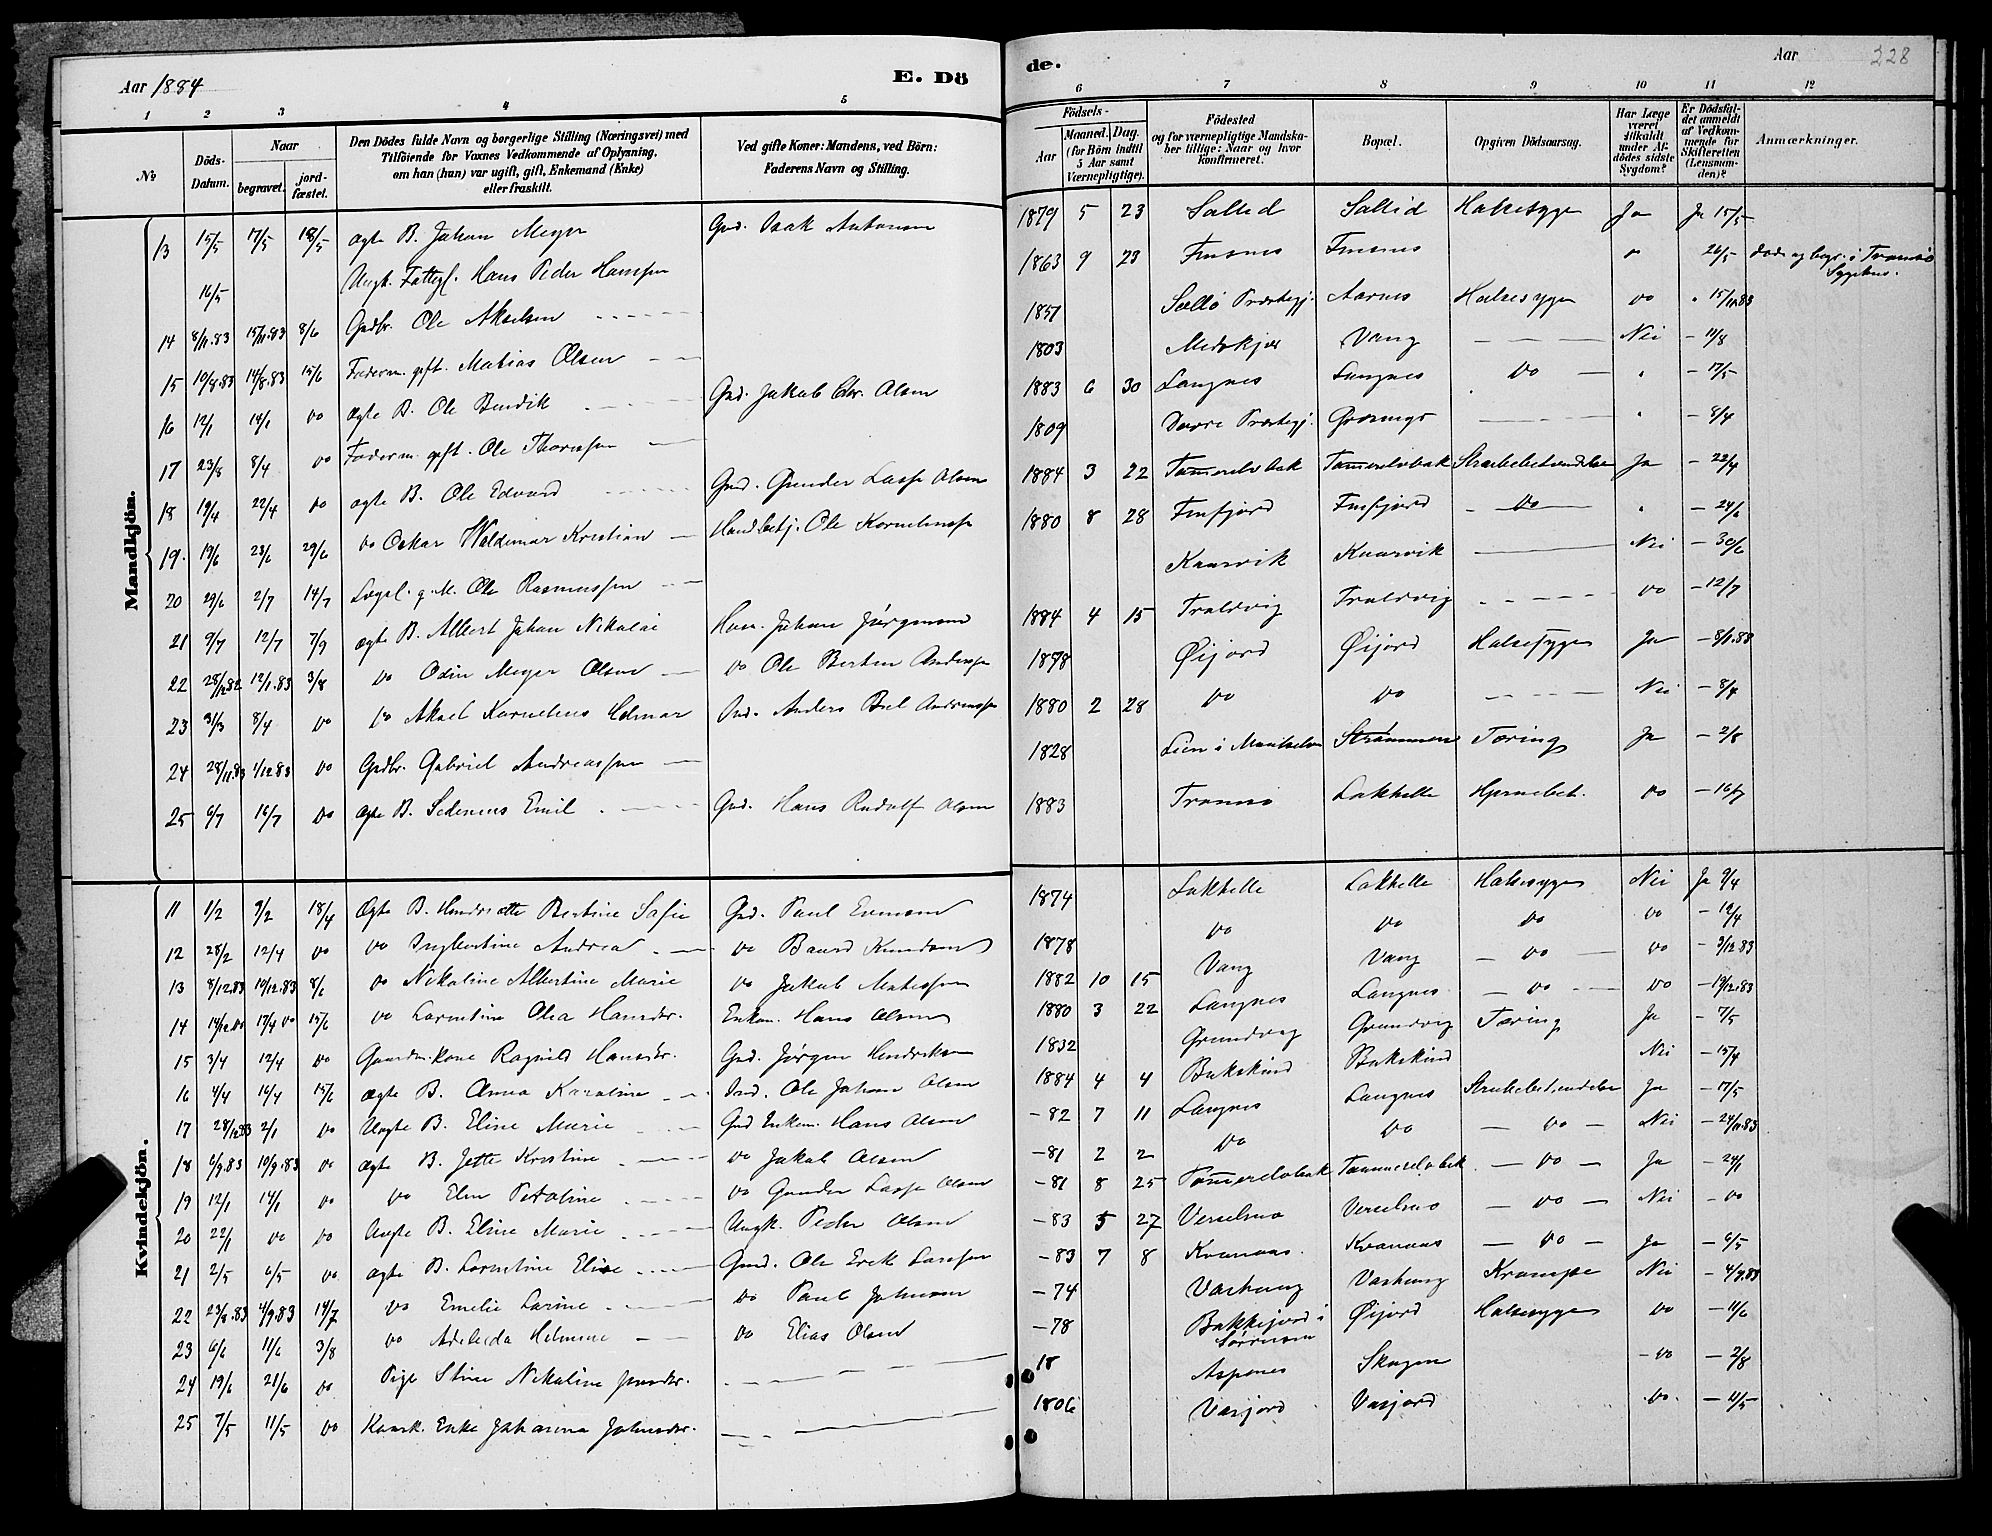 Aar 1884
E. Dö
de.
Aar
228
1 2 3 4 5 6 7 8 9 10 11 12
No
Döds-Datum.
Naar
begravet.
jord-fæstet.
Den Dödes fulde Navn og borgerlige Stilling (Næringsvei) med
Tilföiende for Voxnes Vedkommende af Oplysning,
om han (hun) var ugift, gift, Enkemand (Enke)
eller fraskilt.
Ved gifte Koner: Mandens, ved Börn:
Faderens Navn og Stilling.
Födsels-
Aar
Maaned. Dag.
(for Börn indtil
5 Aar samt
Værnepligtige).
Födested
og for værnepligtige Mandska-
ber tillige: Naar og hvor
konfirmeret.
Bopæl.
Opgiven Dödsaarsag.
Har Læge
været
tilkaldt
under Af-
dödes sidste
Sygdom?
Er Dödsfal-
det anmeldt
af Vedkom-
mende for
Skifteretten
(Lensman-
den)?
Anmærkninger.
Mandkjön.
13 15/5 17/5 18/5 ægte B. Johan Meyer Grd. Isak Antonsen 1879 5 23 Sallid Sallid Halsesyge Ja Ja 15/5
16/5 Ungk. Fattigl. Hans Peder Hanssen 1863 9 23 Finsnes Finsnes " 26/5 døde og begr. i Tromsø Sygehus.
14 8/11.83 15/11.83 8/6 Grdbr. Ole Akselsen 1851 Præstegj. Aarnes Halsesyge do " 15/11.83
15 10/8.83 14/8.83 15/6 Føderm. gift. Matias Olsen 1803 Vang Nei - 11/8
16 12/1 14/1 do ægte B. Ole Bendik Grd. Jakob Chr. Olsen 1883 6 30 Langnes Langnes do " - 17/5
17 23/3 8/4 do Føderm. gift. Ole Thomassen 1809 Dovre Præstegj. " - 8/4
18 19/4 22/4 do ægte B. Ole Edvard Grd. Gunder Lasse Olsen 1884 3 22 Tømmerelvbak Tømmerelvbak Strubebetændelse Ja - 22/4
19. 19/6 23/6 29/6 do Oskar Waldemar Kristian Handlebetj. Ole Korneliussen 1880 8 28 Finfjord Finfjord - do - " - 24/6
20 29/6 2/7 14/7 Lægsl. g. M. Ole Rasmussen Kaarvik Kaarvik Nei - 30/6
21 9/7 12/7 7/9 ægte B. Albert Johan Nikolai Johan Jørgensen 1884 4 15 Traldvig Traldvig do - 12/7
22 28/12.82 12/1.83 3/8 do Odin Meyer Olsen do Ole Berten Andersen 1878 Øijord Øijord Halsesyge Ja - 8/1.83
23 31/3 8/4 do do Aksel Kornelius Helmar Ind. Anders Andreassen 1880 2 28 do do Nei - 8/4
24 28/11.83 1/12.83 do Grdbr. Gabriel Andreassen 1828 Lien i Maalselven Strømmen Tæring Ja - 2/8
25 6/7 16/7 do ægte B. Sedenius Emil Grd. Hans Rudolf Olsen 1883 Tromsø Lakkelle Hjernebet. do - 16/7
Kvindekjön.
11 1/2 9/2 18/4 ægte B. Hendriette Bertine Sofie Grd. Paul 1874 Lakkelle Lakkelle Halsesyge Nei Ja 9/4
12 28/2 12/4 do do Ingbertine Andrea do Baard Knudsen 1878 do do do do - 12/4
13 8/12.83 10/12.83 8/6 do Nikoline Albertine Marie do Jakob Matissen 1882 10 15 Vang Vang - do - do - 9/12.83
14 14/12.83 17/4 do 15/6 do Lornitine Olea Hansdr. Enkem. Hans Olsen 1880 3 22 Langnes Langnes - do - do - 19/12.83
15 3/4 12/4 do Gaardm.kone Ragnild Hansdr. Grd. Jørgen Hendriksen 1832 Grundvig Grundvig Tæring Ja - 7/5
16 4/4 14/4 15/6 ægte B. Anna Karoline Ind. Ole Johan Olsen 1884 4 4 Bukskind Bukskind Nei - 15/4
17 28/12.83 2/1 do Uægte B. Eline Marie Grd Enkem. Hans Olsen - 82 7 11 Langnes Langnes Strubebetændelse Ja - 17/5
18 6/9.83 10/9.83 do ægte B. Jette Kristine do Jakob Olsen - 81 2 2 do do - do - Nei - 24/11.83
19 12/1 14/1 do do Elen Petoline do Gunder Lasse Olsen - 81 8 25 Tømmerelvbak Tømmerelvbak - do - Ja - 24/1
20 22/1 do do Uægte B. Eline Marie Ungk. Peder Olsen - 83 5 27 Veiselmo Veiselmo - do - Nei - do
21 2/5 6/5 do ægte B. Lornitine Elise Grd. Ole Erik Larssen - 83 7 8 Kvanaas. Kvanaas - do - Ja - 6/5
22 23/8.83 4/9.83 14/7 do Emelie Larine do Paul Johnsen - 74 Varhaug Varhaug Krampe Nei - 4/9.83
23 6/6 11/6 3/8 do Adeleida Helmine do Elias Olsen - 78 Bakkejord i Sørreisen Øijord Halsesyge do - 11/6
24 19/6 21/6 do Pige Stine Nikoline 18 Aspenes Skogen - do - 2/8
25 7/5 11/5 do Enke Johanna Johnsdr. 1806 Varjord Varjord do. - 11/5